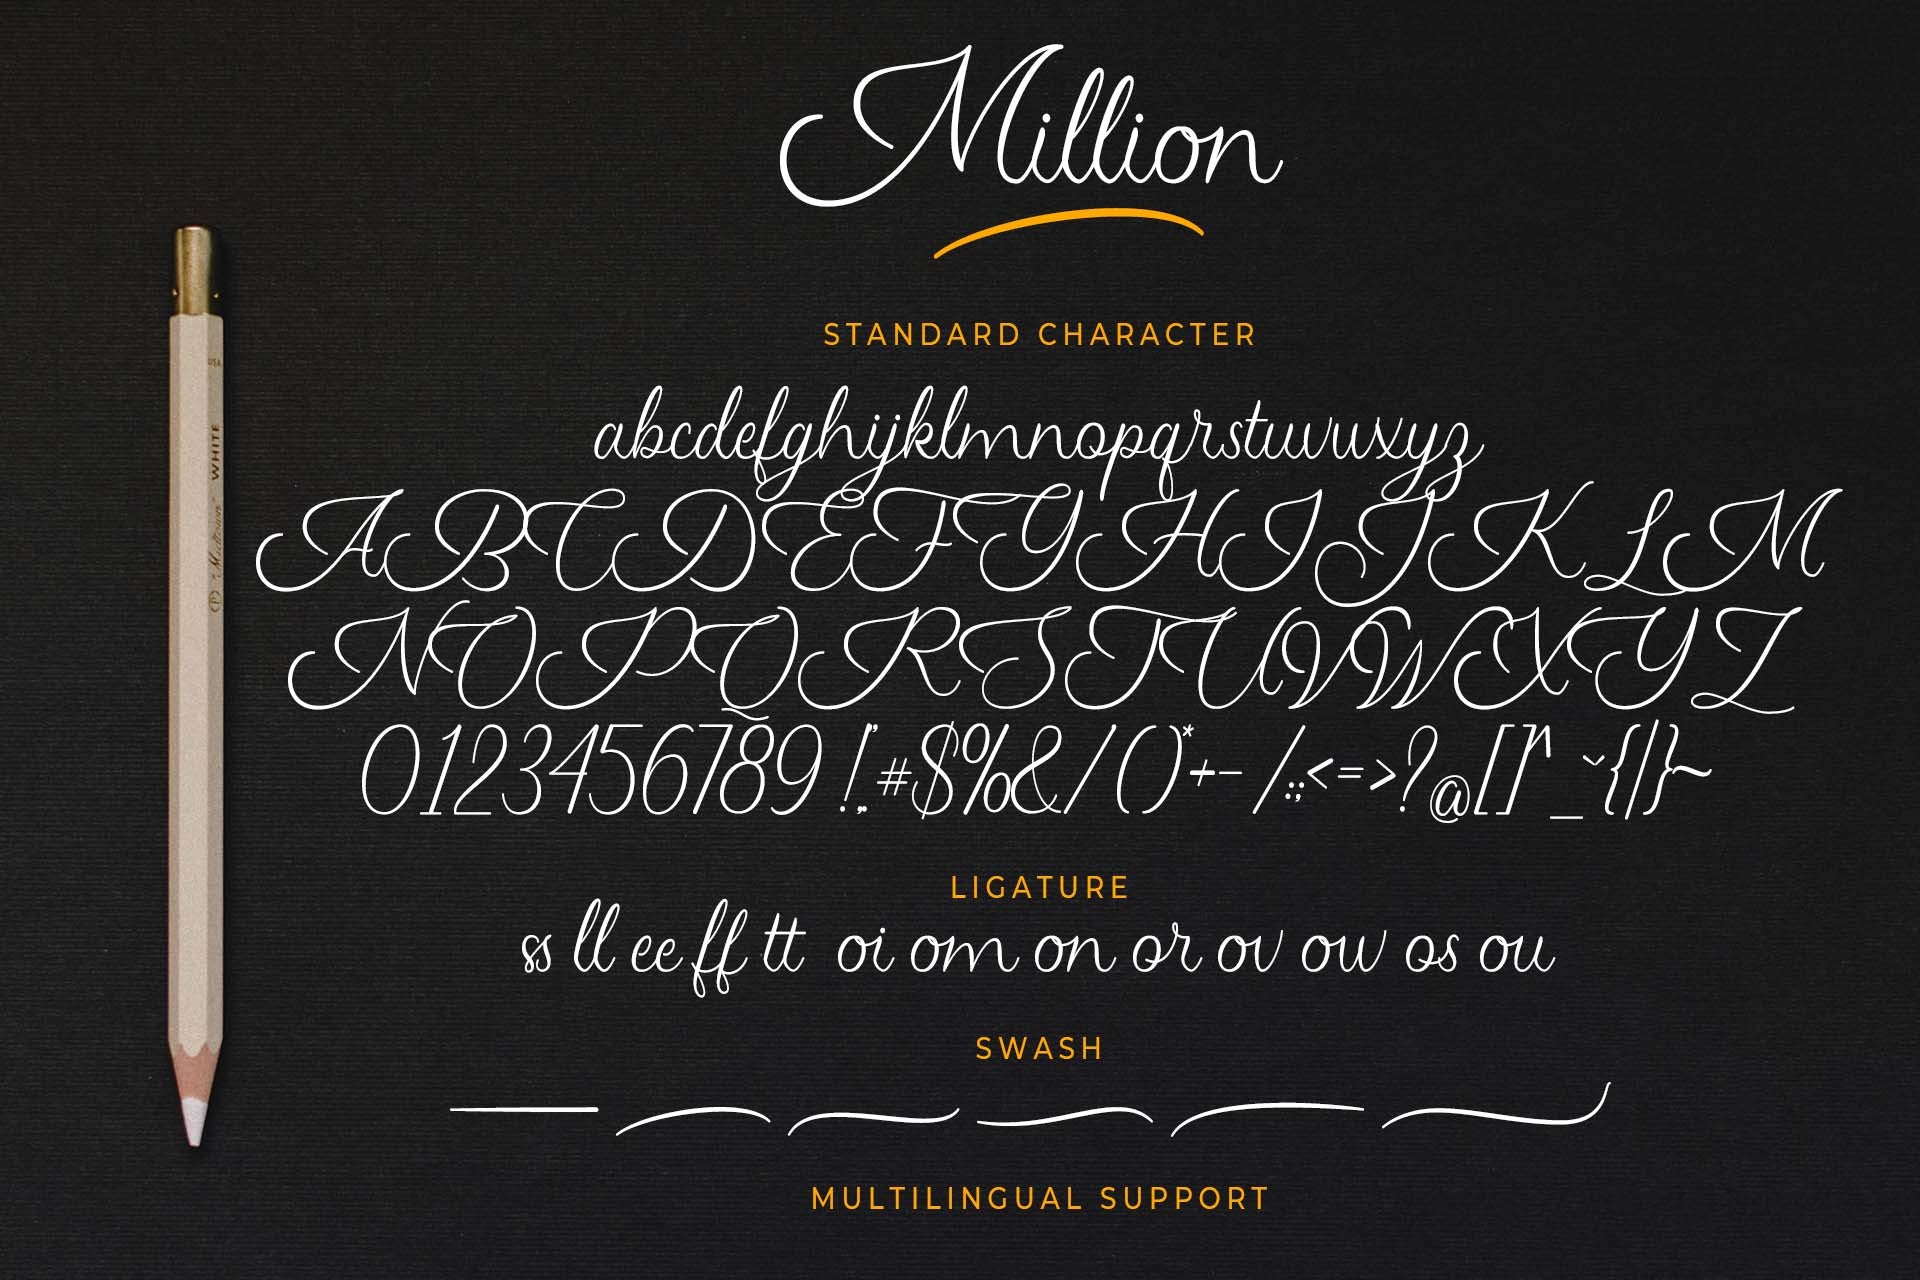 Million
STANDARD CHARACTER
abcdefghijklmnopqrstuvwxyz
ABCDEFGHIJKLM
NOPQRSTUVWXYZ
0123456789 !"#$%&/()*+- /:;<=>?@[]^_˘{|}~
LIGATURE
ss ll ee ff tt oi om on or ov ow os ou
SWASH
MULTILINGUAL SUPPORT
USA
WHITE